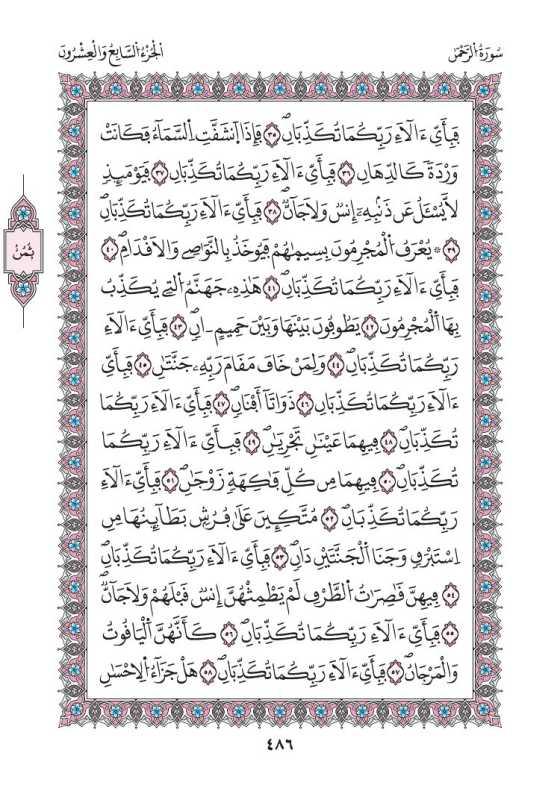 سُورَةُ الرَّحْمَٰن
الْجُزْءُ السَّابِعُ وَالْعِشْرُونَ
فَبِأَيِّ ءَالَآءِ رَبِّكُمَا تُكَذِّبَانِ ٣٥ فَإِذَا اَنشَقَّتِ اِلسَّمَآءُ فَكَانَتْ
وَرْدَةً كَالدِّهَانِ ٣٦ فَبِأَيِّ ءَالَآءِ رَبِّكُمَا تُكَذِّبَانِ ٣٧ فَيَوْمَئِذٍ
لَّا يُسْـَٔلُ عَن ذَنۢبِهِۦٓ إِنسٌ وَلَا جَآنٌّ ٣٨ فَبِأَيِّ ءَالَآءِ رَبِّكُمَا تُكَذِّبَانِ
٣٩ * يُعْرَفُ اُلْمُجْرِمُونَ بِسِيمَٰهُمْ فَيُوخَذُ بِالنَّوَٰصِے وَالَاقْدَامِ ٤٠
ثُمُنْ
فَبِأَيِّ ءَالَآءِ رَبِّكُمَا تُكَذِّبَانِ ٤١ هَٰذِهِۦ جَهَنَّمُ اُلتِے يُكَذِّبُ
بِهَا اَلْمُجْرِمُونَ ٤٢ يَطُوفُونَ بَيْنَهَا وَبَيْنَ حَمِيمٍ ـ انٖ ٤٣ فَبِأَيِّ ءَالَآءِ
رَبِّكُمَا تُكَذِّبَانِ ٤٤ وَلِمَنْ خَافَ مَقَامَ رَبِّهِۦ جَنَّتَٰنِ ٤٥ فَبِأَيِّ
ءَالَآءِ رَبِّكُمَا تُكَذِّبَانِ ٤٦ ذَوَاتَآ أَفْنَانٖ ٤٧ فَبِأَيِّ ءَالَآءِ رَبِّكُمَا
تُكَذِّبَانِ ٤٨ فِيهِمَا عَيْنَٰنِ تَجْرِيَٰنِ ٤٩ فَبِأَيِّ ءَالَآءِ رَبِّكُمَا
تُكَذِّبَانِ ٥٠ فِيهِمَا مِن كُلِّ فَٰكِهَةٖ زَوْجَٰنِ ٥١ فَبِأَيِّ ءَالَآءِ
رَبِّكُمَا تُكَذِّبَانِ ٥٢ مُتَّكِـِٕينَ عَلَىٰ فُرُشِۢ بَطَآئِنُهَا مِنِ
اِسْتَبْرَقٖ وَجَنَا اَلْجَنَّتَيْنِ دَانٖ ٥٣ فَبِأَيِّ ءَالَآءِ رَبِّكُمَا تُكَذِّبَانِ
٥٤ فِيهِنَّ قَٰصِرَٰتُ اُلطَّرْفِ لَمْ يَطْمِثْهُنَّ إِنسٌ قَبْلَهُمْ وَلَا جَآنٌّ
٥٥ فَبِأَيِّ ءَالَآءِ رَبِّكُمَا تُكَذِّبَانِ ٥٦ كَأَنَّهُنَّ اَلْيَاقُوتُ
وَالْمَرْجَانُ ٥٧ فَبِأَيِّ ءَالَآءِ رَبِّكُمَا تُكَذِّبَانِ ٥٨ هَلْ جَزَآءُ اُلِاحْسَٰنِ
٤٨٦